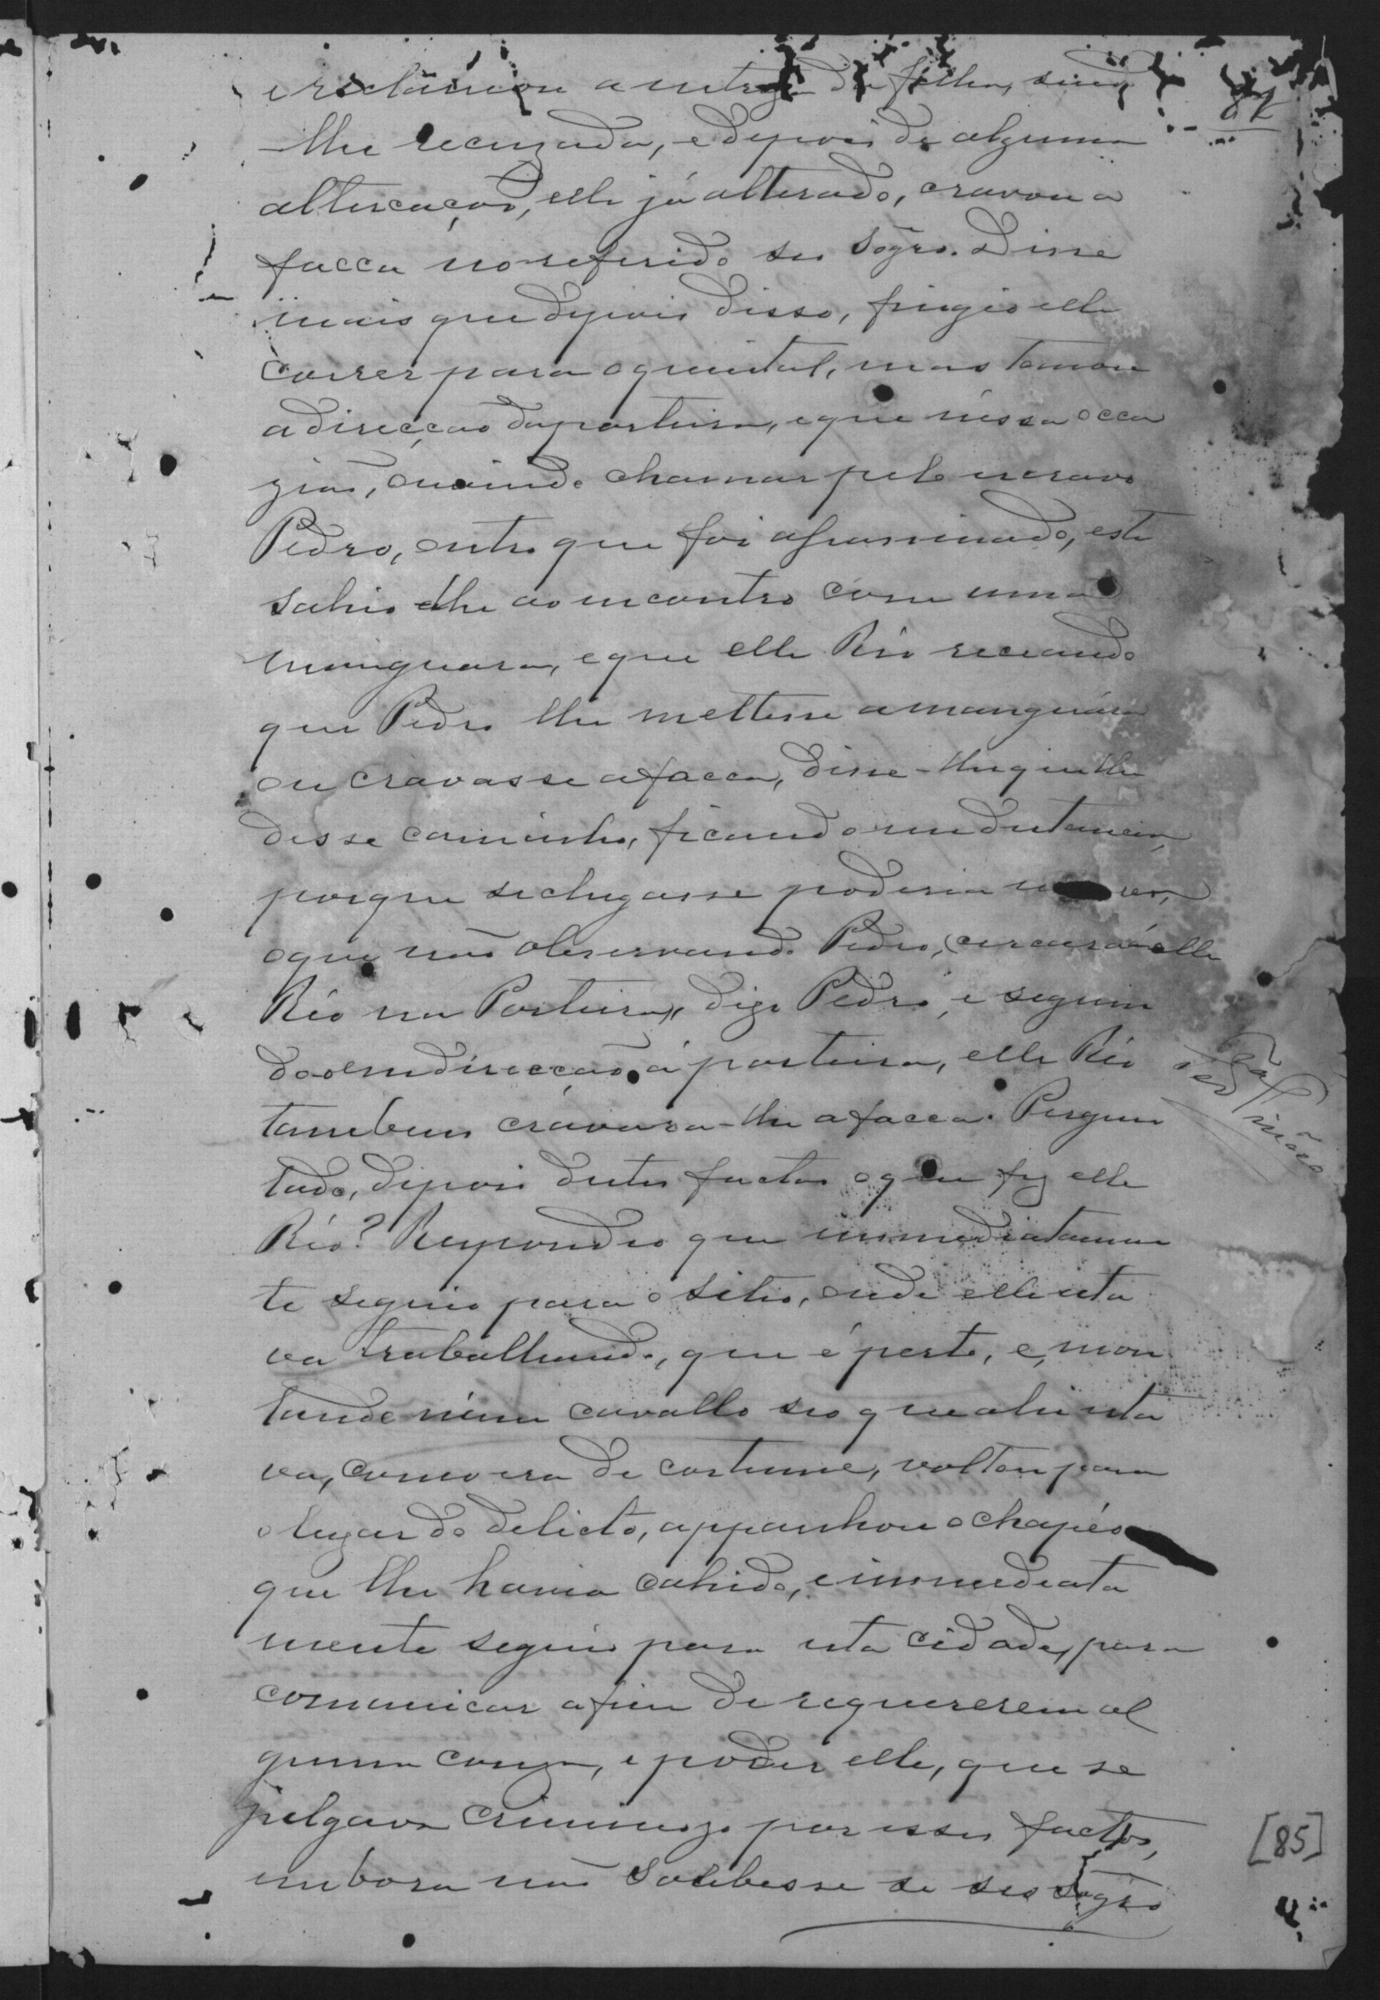 82
e reclamou a entrega da filha, sendo
lhe recuzada, e depois de alguma
altercação, elle já alterado, cravou a
facca no referido seu Sogro. Disse
mais que depois disso, fingio elle
correr para o quintal, mas tomou
a direcção da porteira, e que nessa occa
zião, ouvindo chamar pelo escravo
Pedro, outro que foi assassinado, este
sahio-lhe ao encontro com uma
manguara, e que elle Réo receiando
que Pedro lhe mettesse a manguára
ou cravasse a facca, disse-lhe que lhe
desse caminho, ficando em distancia,
porque se chegasse poderia
o que não observando Pedro, cercára elle
Réo na Porteira, digo Pedro, e seguin
do em direcção á porteira, elle Réo
tambem cravára-lhe a facca. Pergun
tado, depois destes factos o que fez elle
Réo? Respondeo que immediatamen
te seguio para o sitio, onde elle esta
va trabalhando, que é perto, e, mon
tando n'um cavallo seo que ahi esta
va, como era de costume, voltou para
o lugar do delicto, appanhou o chapéo
que lhe havia cahido, e immediata
mente seguio para esta cidade, para
comunicar a fim de requererem al
guma couza, e poder elle, que se
julgava criminozo por esses factos,
embora não soubesse se seo Sogro
[85]